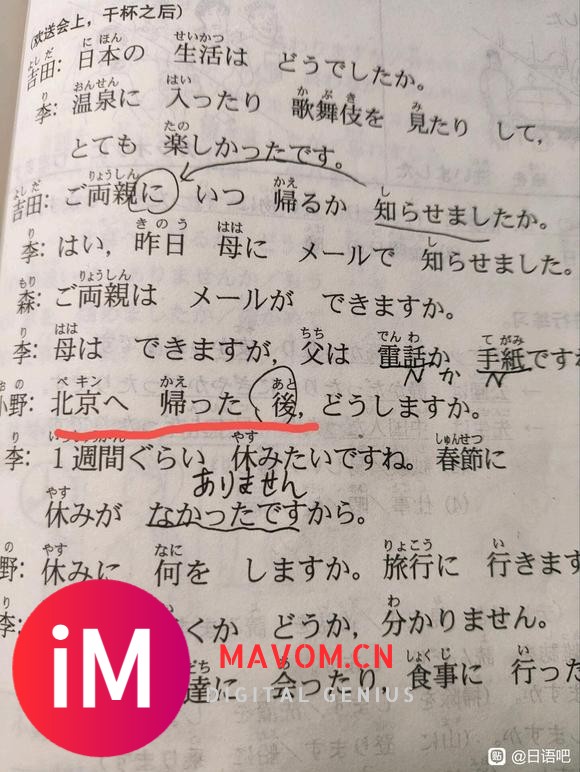 (欢送会上，干杯之后)
吉田: 日本の 生活は どうでしたか。
李: 温泉に 入ったり 歌舞伎を 見たり して，
とても 楽しかったです。
吉田: ご両親に いつ 帰るか 知らせましたか。
李: はい，昨日 母に メールで 知らせました。
森: ご両親は メールが できますか。
李: 母は できますが，父は 電話か 手紙です
NかN
小野: 北京へ 帰った 後，どうしますか。
李: 1週間ぐらい 休みたいですね。春節に
ありません
休みが なかったですから。
野: 休みに 何を しますか。旅行に 行きます
李: くか どうか，分かりません。
達に 会ったり，食事に 行った
iM
MAVOM.CN
DIGITAL GENIUS
貼 @日语吧